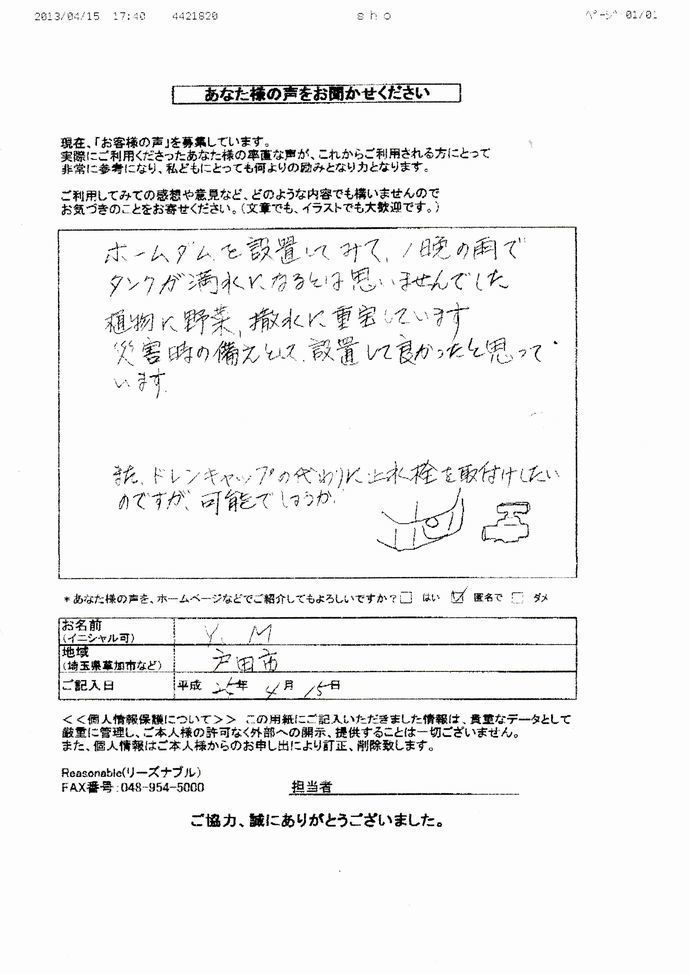 2013/04/15 17:40 4421820 sho ﾍﾟｰｼﾞ 01/01
あなた様の声をお聞かせください
現在、「お客様の声」を募集しています。
実際にご利用くださったあなた様の率直な声が、これからご利用される方にとって
非常に参考になり、私どもにとっても何よりの励みとなり力となります。
ご利用してみての感想や意見など、どのような内容でも構いませんので
お気づきのことをお寄せください。(文章でも、イラストでも大歓迎です。)
ホームダムを設置してみて、1晩の雨で
タンクが満水になるとは思いませんでした
植物に野菜、撒水に重宝しています
災害時の備えとして、設置して良かったと思って
います。
また、ドレンキャップの代わりに止水栓を取付けしたい
のですが、可能でしょうか。
*あなた様の声を、ホームページなどでご紹介してもよろしいですか? はい 匿名で ダメ
お名前
(イニシャル可) Y. M
地域
(埼玉県草加市など) 戸田市
ご記入日 平成 25年 4月 15日
<<個人情報保護について>> この用紙にご記入いただきました情報は、貴重なデータとして
厳重に管理し、ご本人様の許可なく外部への開示、提供することは一切ございません。
また、個人情報はご本人様からのお申し出により訂正、削除致します。
Reasonable(リーズナブル)
FAX番号:048-954-5000 担当者
ご協力、誠にありがとうございました。